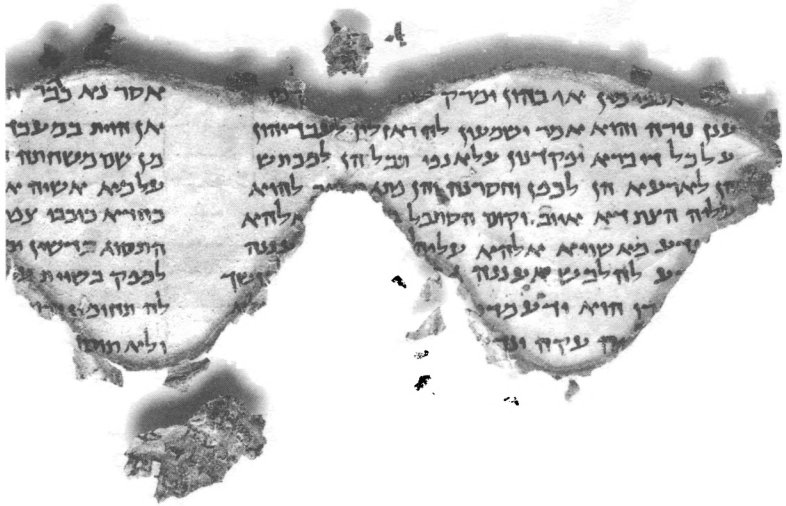 אנפי מין אף בהון ימרק
ענן נורה והוא אמר ושמעון לה ואזלין לעבדיהון
על כל די ברא יפקדנון על אנפי תבל הן למכתש
הן לארעא הן לכפן וחסרנה והן פתגם להוא
עליה הצת דא איוב וקום הסתכל אלהא
ידע מא שויא אלהא עליה עננה
ע להלבשא עננה חשך
הוא ידע מדע
עקה ונד
אסר נא כגבר ח
אן הוית במעבד
מן שם משחתה
על מא אשיה א
כחדא כוכבי צפ
התסוג בדשין
למפק בשוית
לה תחומין
ולא תוסף